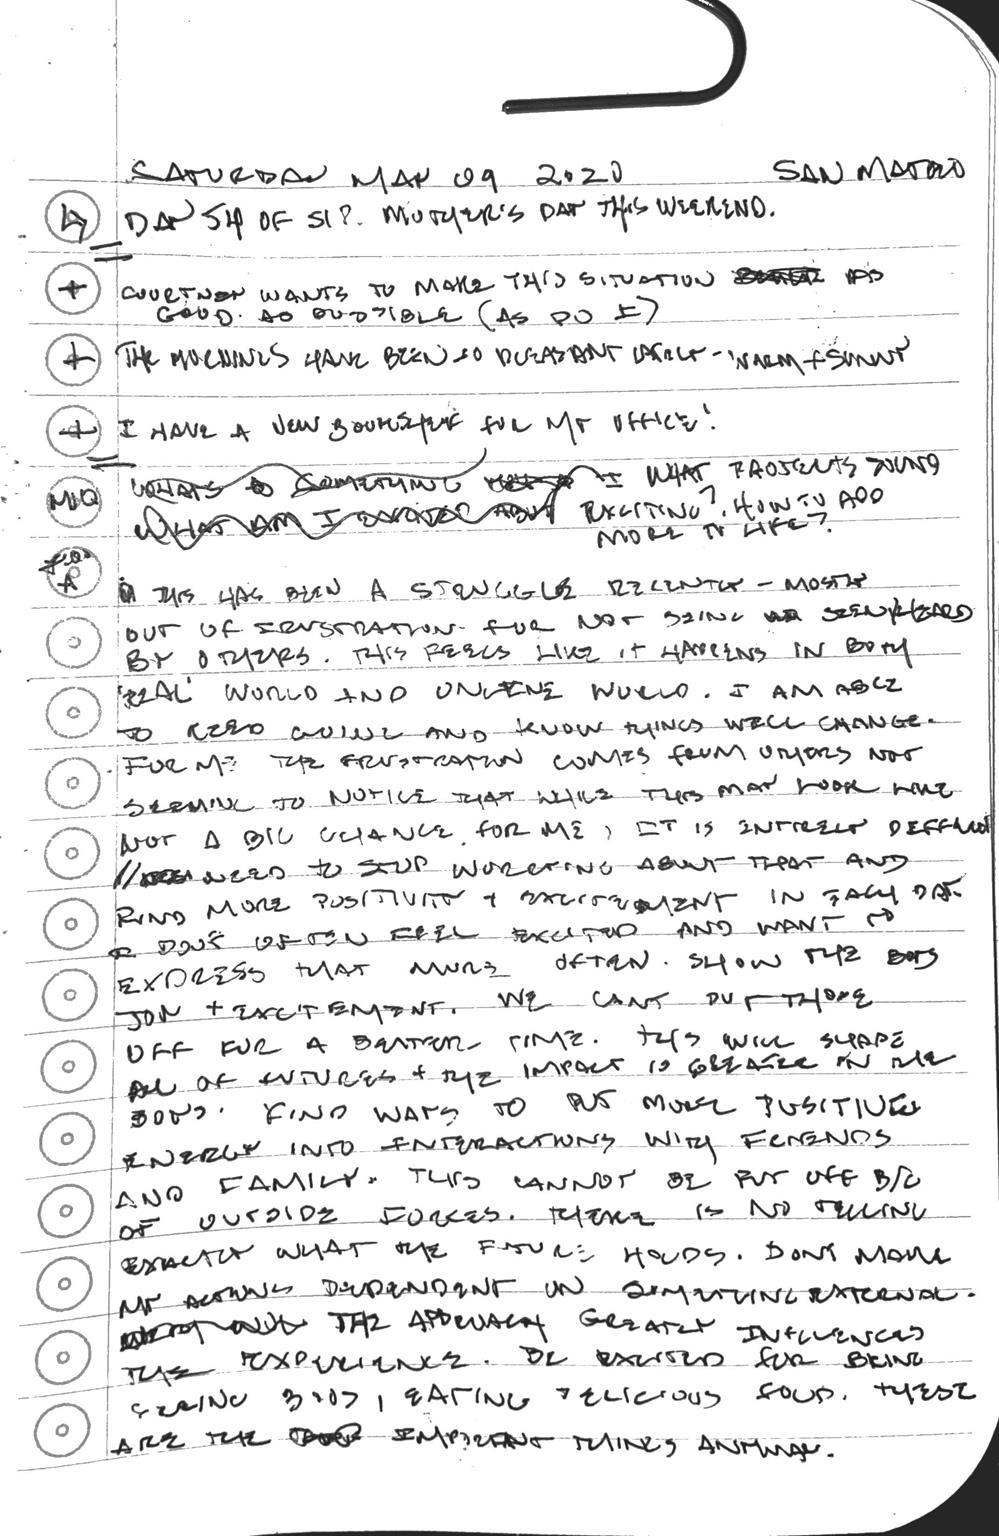 SATURDAY MAY 09 2020 SAN MATEO
DAY 54 OF SIP. MOTHER'S DAY THIS WEEKEND.
+ COURTNEY WANTS TO MAKE THIS SITUATION AS
GOOD AS POSSIBLE (AS DO I)
+ THE MORNINGS HAVE BEEN SO PLEASANT LATELY - WARM + SUNNY
+ I HAVE A NEW BOOKSHELF FOR MY OFFICE!
MDQ WHAT IS SOMETHING I WHAT PROJECTS SOUND
WHAT AM I EXCITED ABOUT EXCITING? HOW TO ADD
MORE TO LIFE?
A THIS HAS BEEN A STRUGGLE RECENTLY - MOSTLY
OUT OF FRUSTRATION FOR NOT BEING SEEN/HEARD
BY OTHERS. THIS FEELS LIKE IT HAPPENS IN BOTH
'REAL' WORLD AND ONLINE WORLD. I AM ABLE
TO KEEP GOING AND KNOW THINGS WILL CHANGE.
FOR ME THE FRUSTRATION COMES FROM OTHERS NOT
SEEMING TO NOTICE THAT WHILE THIS MAY LOOK LIKE
NOT A BIG CHANCE FOR ME, IT IS ENTIRELY DIFFERENT
// NEED TO STOP WORRYING ABOUT THAT AND
FIND MORE POSITIVITY + EXCITEMENT IN EACH DAY.
I DON'T OFTEN FEEL EXCITED AND WANT TO
EXPRESS THAT MORE OFTEN. SHOW THE BOYS
JOY + EXCITEMENT. WE CAN'T PUT THOSE
OFF FOR A BETTER TIME. THIS WILL SHAPE
ALL OF FUTURES + THE IMPACT IS GREATER IN THE
BOYS. FIND WAYS TO PUT MORE POSITIVE
ENERGY INTO INTERACTIONS WITH FRIENDS
AND FAMILY. THIS CANNOT BE PUT OFF B/C
OF OUTSIDE FORCES. THERE IS NO TELLING
EXACTLY WHAT THE FUTURE HOLDS. DON'T MAKE
MY ACTIONS DEPENDENT ON SOMETHING EXTERNAL.
THE APPROACH GREATLY INFLUENCES
THE EXPERIENCE. BE EXCITED FOR BEING
SEEING BOYS, EATING DELICIOUS FOOD. THESE
ARE THE IMPORTANT THINGS ANYWAY.